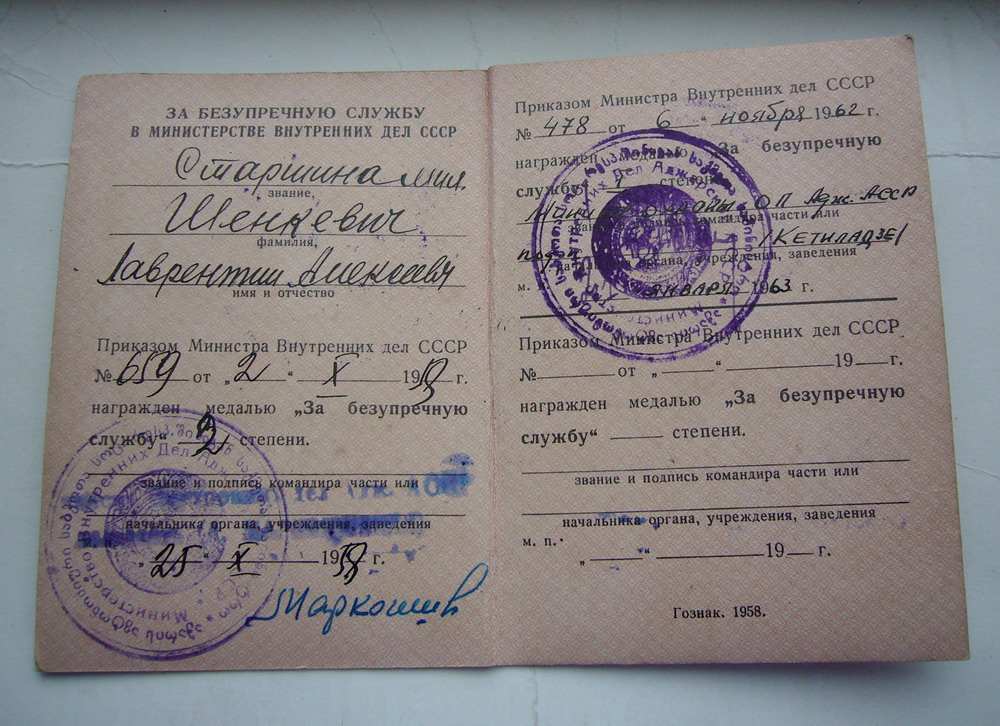 ЗА БЕЗУПРЕЧНУЮ СЛУЖБУ
В МИНИСТЕРСТВЕ ВНУТРЕННИХ ДЕЛ СССР
Старшина мил.
звание,
Шенкевич
фамилия,
Лаврентий Алексеевич
имя и отчество
Приказом Министра Внутренних дел СССР
№ 659 от „2“ X 19 г.
награжден медалью „За безупречную
службу“ 2 степени.
звание и подпись командира части или
начальника органа, учреждения, заведения
м. п.
„25“ X 19 г.
Министерство Внутренних Дел
Приказом Министра Внутренних дел СССР
№ 478 от „6“ ноября 1962 г.
награжден медалью „За безупречную
службу“ степени
ОП Адж. АССР
звание командира части или
/КЕТИЛАДЗЕ/
органа, учреждения, заведения
м. января 1963 г.
Приказом Министра Внутренних дел СССР
№ от „ “ 19 г.
награжден медалью „За безупречную
службу“ степени.
звание и подпись командира части или
начальника органа, учреждения, заведения
м. п.
„ “ 19 г.
Гознак. 1958.